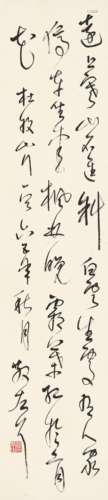 遠上寒山石徑斜白雲生處有人家
停車坐愛楓林晚霜葉紅於二月
花 杜牧山行 年秋月 散左耳